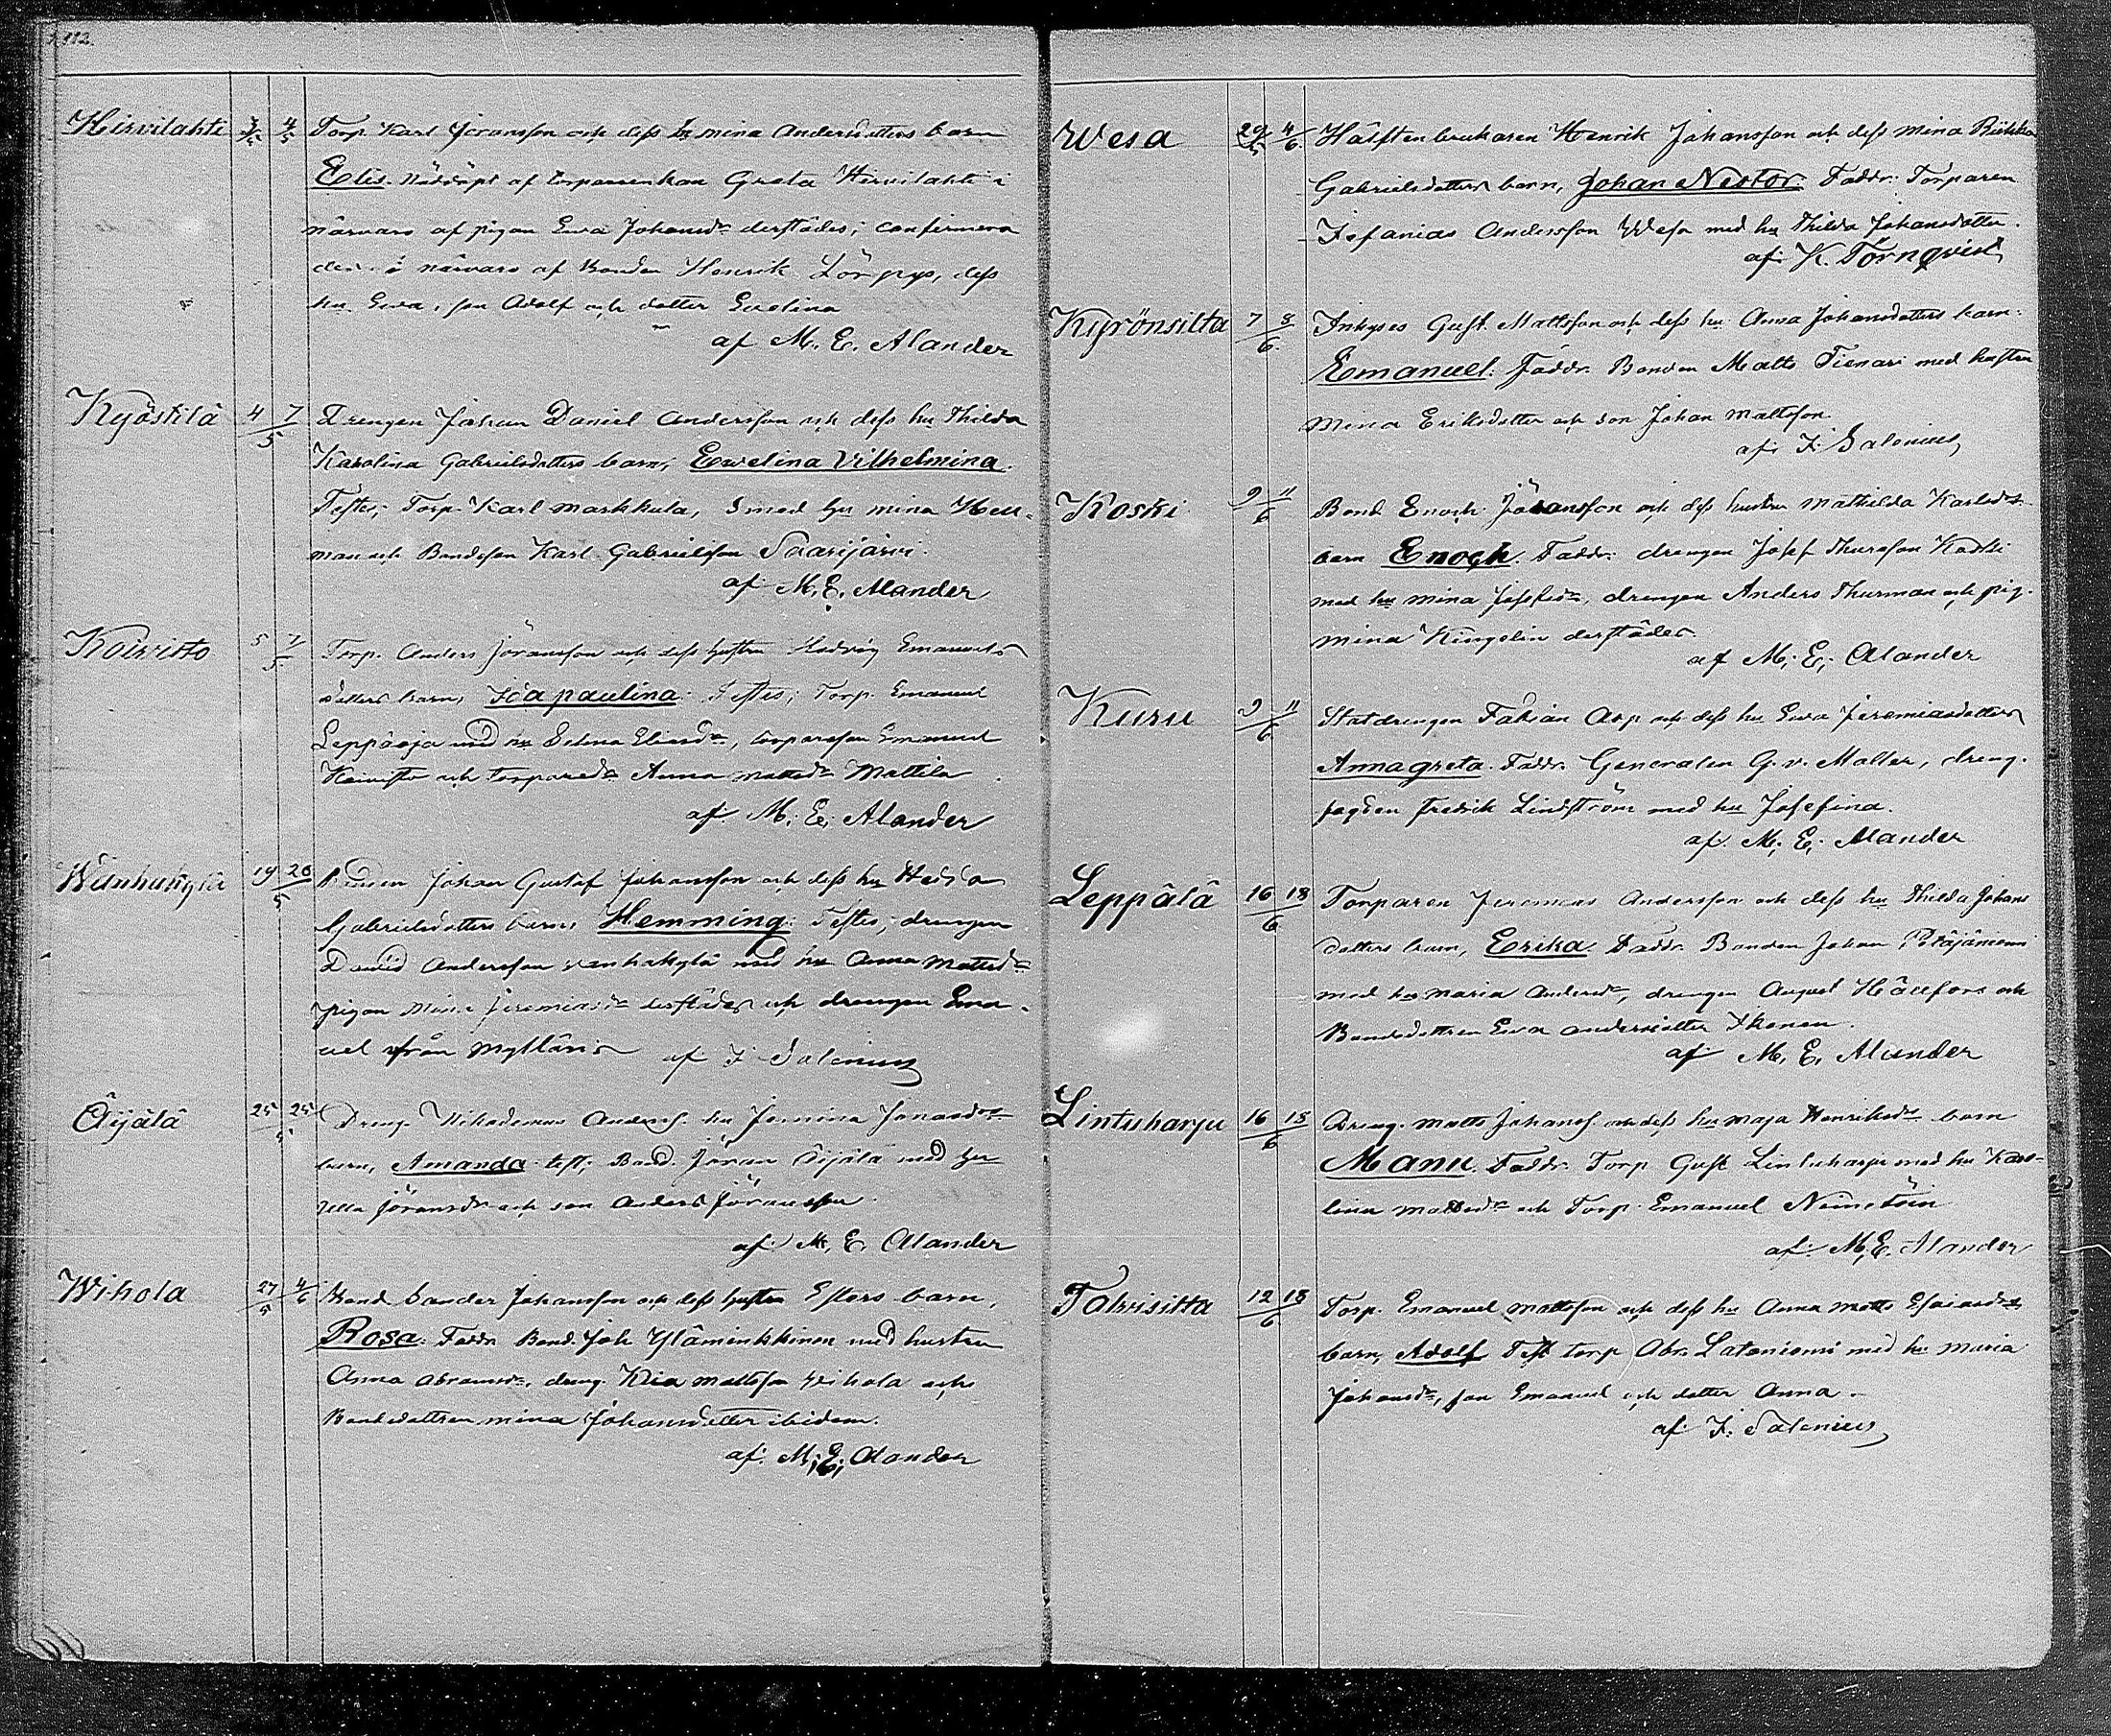 112.
Hirvilahti 3/5 4/5 Torp. Karl Jöransson och dess hu mina Andersdotters barn
Elis. Nöddöpt af torparenkan Greta Hirvilahti i
närvaro af pigan Eva Johansdr derstädes; confirmera
des i närvaro af Bonden Henrik Lörpys, dess
hu Eva, son Adolf och dotter Evelina
af M. E. Alander
Kyöstilä 4 7/5 Drengen Johan Daniel Andersson och dess hu Thilda
Karolina Gabrielsdotters barn, Ewelina Vilhelmina.
Testes; Torp. Karl Markkula, smed hu mina Heu-
man och Bondeson Karl Gabrielsson Saarijärvi.
af M. E. Alander
Koivisto 5 7/5 Torp. Anders Jöransson och dess hustru Hedvig Emanuels
dotters barn, Ida paulina. Testes; Torp. Emanuel
Leppäoja med hu Selma Eliasdr, torpareson Emanuel
Koivisto och torparedr Anna Mattsdr Mattila.
af. M. E. Alander
Wanhakylä 19 20/5 Johan Gustaf Johansson och dess hu Hedda
Gabrielsdotters barn, Hemming. Testes; drengen
David Andersson Vanhakylä med hu Anna Mattsdr
pigan Mina Jeremiasdr derstädes och drengen Ema-
uel från Mylläri af F. Salenius
Äijälä 25 25/5 Dreng. Nikodemus Anderss. hu Jonasdr
barn, Amanda. test; Bond. Jöran Äijälä med hu
Ulla Jöransdr och son Anders Jöransson.
af M. E. Alander
Wihola 27/5 4/6 Bond Sander Johansson och dess hustru Esters barn,
Rosa. Faddr. Bond. Joh Yläminkkinen med hustru
Anna Abramsdr, dreng. Mattsson Wihola och
Bondedottren mina Johansdotter ibidem.
af. M. E. Alander
Wesa 29/5 4/6. Hälftenbrukaren Henrik Johansson och dess mina Riikka
Gabrielsdotters barn, Johan Nestor. Faddr. Torparen
Sefanias Andersson Wesa med hu Thilda Johansdotter.
af K. Törnqvist
Kyrönsilta 7 8/6. Inhyses Gust. Mattsson och dess hu Anna Johansdotters barn.
Emanuel. Faddr. Bonden Matts Tienari med hustru
Mina Eriksdotter och son Johan Mattsson.
af F. Salenius
Koski 9 11/6 Bond Enoch Jöransson och dess hustru Mathilda Karlsdrs
barn Enoch. Faddr. drengen Josef Thuresson Koski
med hu mina Josefsdr, drengen Anders Thurman och pig.
mina Kingelin derstädes.
af M. E. Alander
Kuru 9 11/6. Statdrengen Fabian Asp och dess hu Eva Jeremiasdotters
Annagreta. Faddr. Generalen G. v. Moller, dreng.
fogden Fredrik Lindström med hu Josefina.
af. M. E. Alander
Leppälä 16 18/6 Torparen Jeremias Andersson och dess hu Thilda Johans
dotters barn, Erika. Faddr. Bonden Johan Petäjäniemi
med hu maria Andersdr, drengen August Hällfors och
Bondedottren Eva Andersdotter Ikonen.
af M. E. Alander
Lintuharju 16 18/6 Dreng. Matts Johanss. och dess hu maja Henriksdrs barn
Manu. Faddr. Torp Gust Lintuharju med hu Karo-
lina Mattsdr och Torp. Emanuel Niinistöin
af. M. E. Alander
Talvisilta 12 18/6 Torp. Emanuel Mattsson och dess hu Anna Esaiasdrs
barn, Adolf Test torp Abr. Lataniemi med hu maria
Johansdr, son Emanuel och dotter Anna.
af F. Salenius